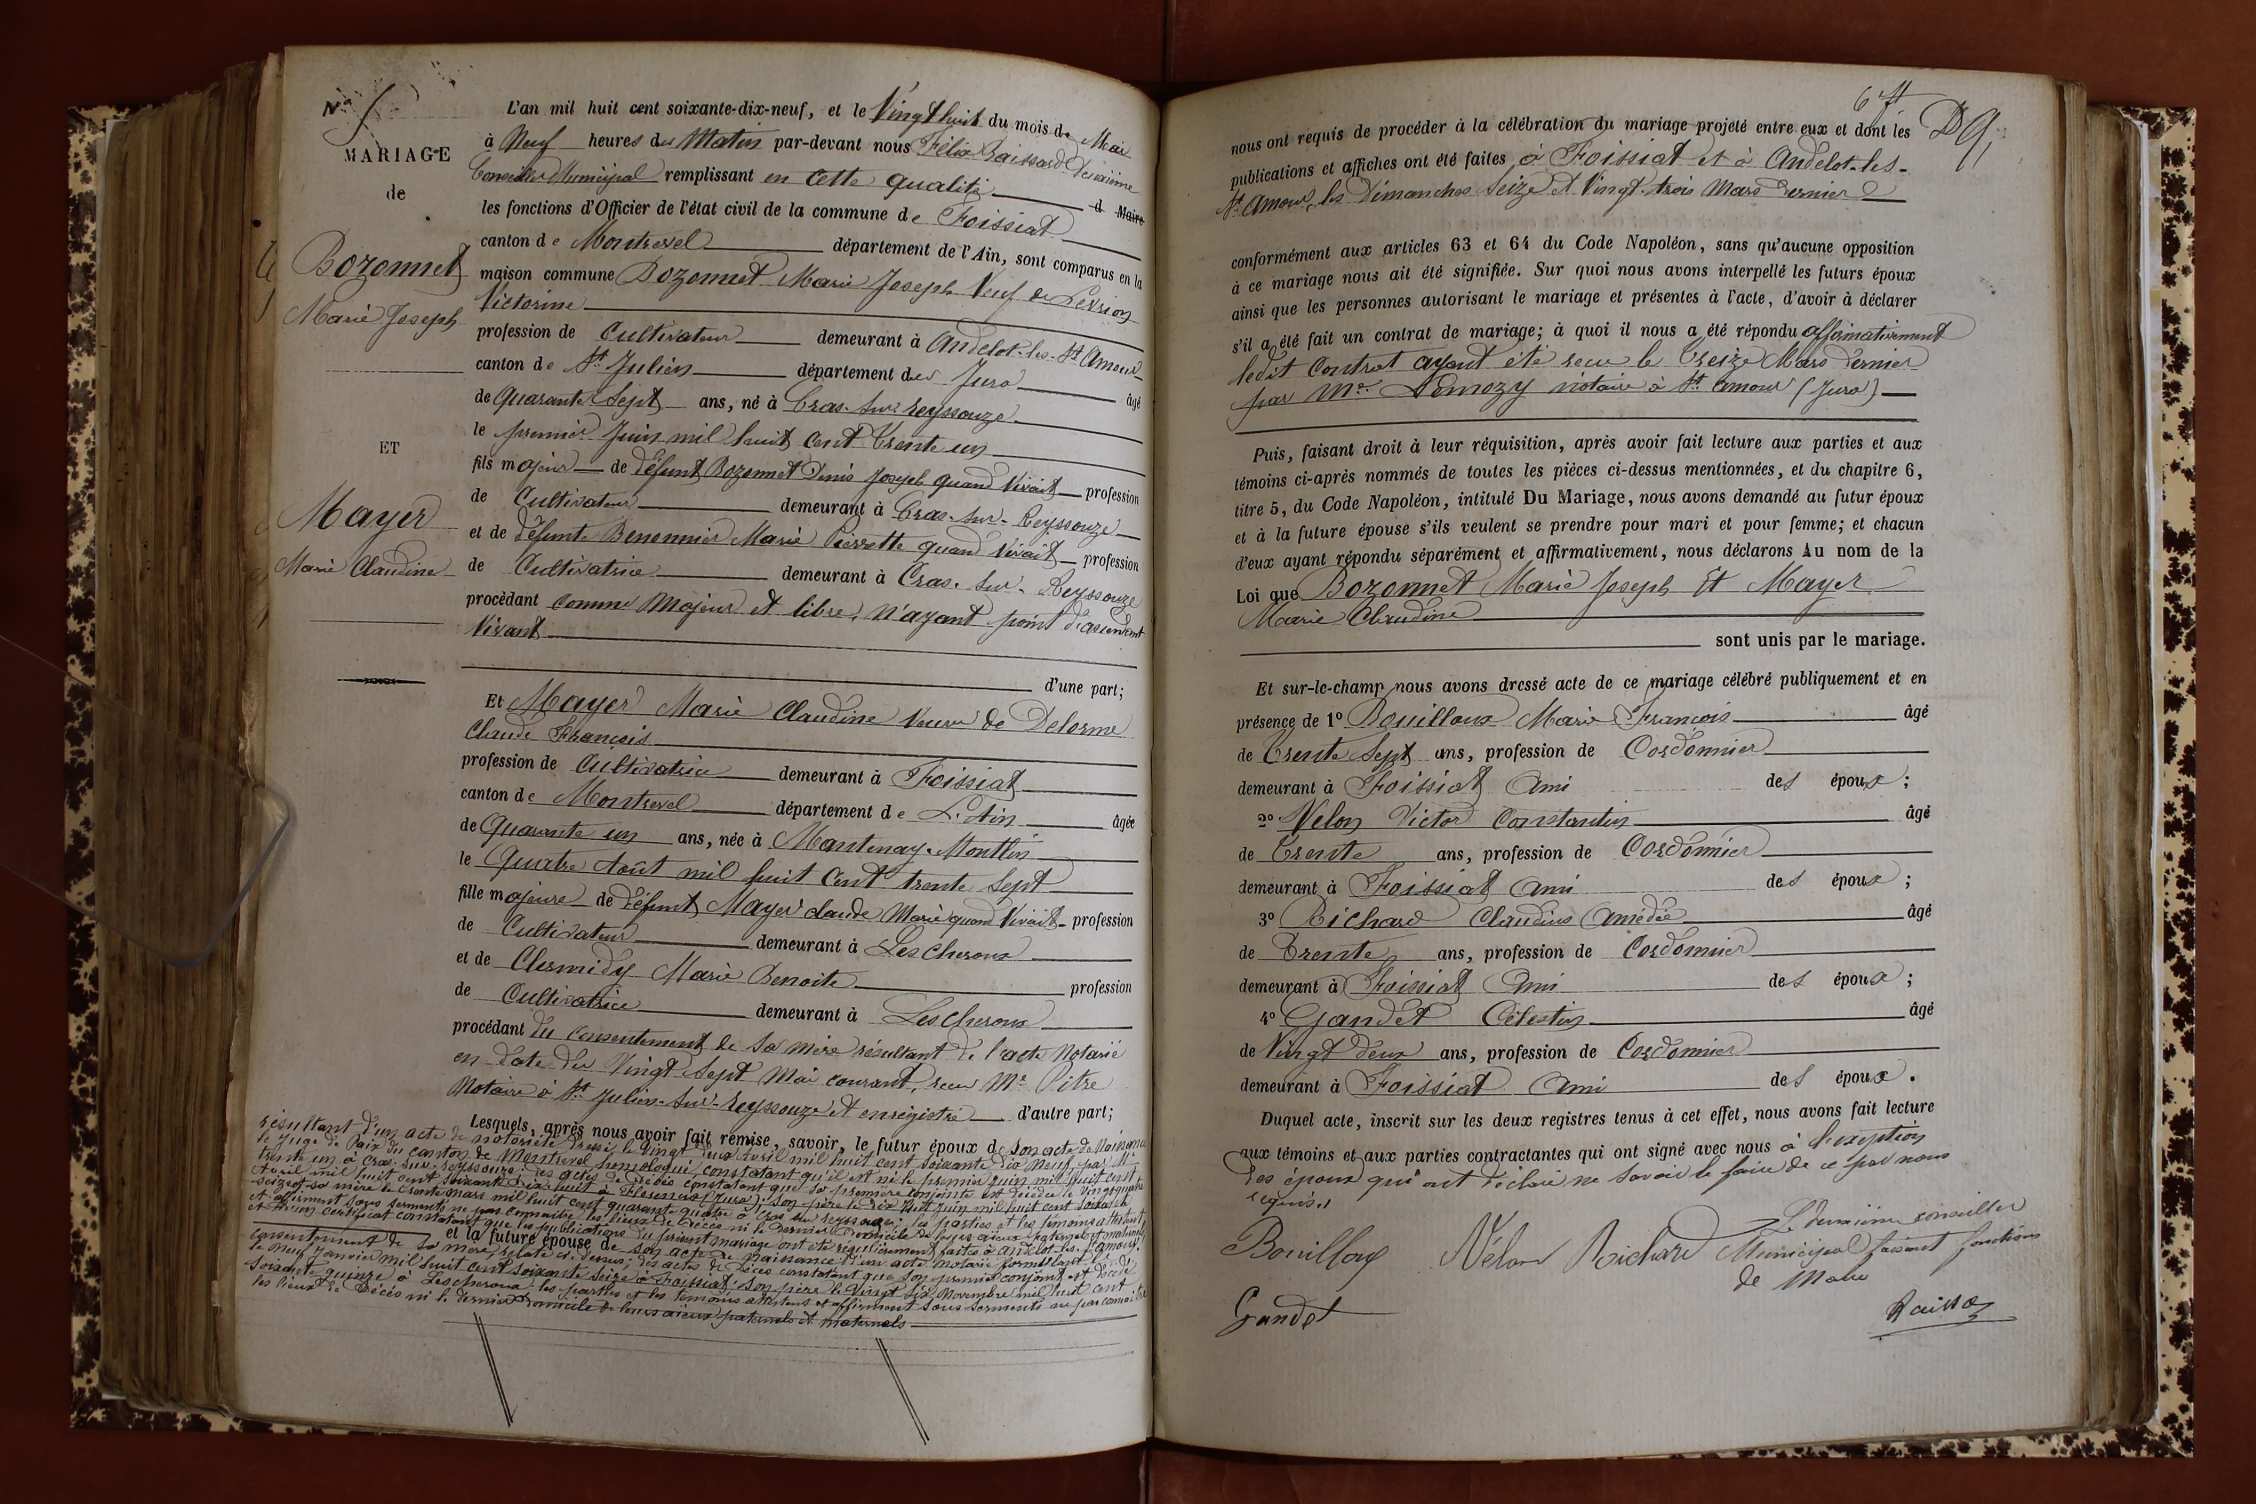 No 5
MARIAGE
de
Bozonnet
Marie Joseph
ET
Mayer
Marie Claudine
L'an mil huit cent soixante-dix-neuf, et le Vingt huit du mois de Mai
à Neuf heures du Matin par-devant nous Félix Raissard Deuxième
Conseiller Municipal remplissant en cette qualité d Maire
les fonctions d'Officier de l'état civil de la commune de Foissiat
canton de Montrevel département de l'Ain, sont comparus en la
maison commune Bozonnet Marie Joseph Veuf de
Victorine
profession de Cultivateur demeurant à Andelot-les-St Amour
canton de St Julien département du Jura âgé
de Quarante Sept ans, né à Cras-sur-reyssouze
le premier Juin mil huit cent trente un
fils majeur de défunt Bozonnet Denis Joseph quand vivait profession
de Cultivateur demeurant à Cras-sur-Reyssouze
et de défunte Marie Pierrette quand vivait profession
de Cultivatrice demeurant à Cras-sur-Reyssouze
procédant comme Majeur et libre, n'ayant point d'ascendant
vivant
d'une part;
Et Mayer Marie Claudine Veuve de Delorme
Claude François
profession de Cultivatrice demeurant à Foissiat
canton de Montrevel département de L'Ain âgée
de Quarante un ans, née à Mantenay-Montlin
le Quatre Août mil huit cent trente sept
fille majeure de défunt Mayer Claude Marie quand vivait profession
de Cultivateur demeurant à Lescheroux
et de Clermidy Marie Benoite profession
de Cultivatrice demeurant à Lescheroux
procédant du consentement de sa mère résultant de l'acte Notarié
en date du Vingt Sept Mai courant, reçu Me Pitre
Notaire à St Julien-sur-reyssouze et enregistré d'autre part;
Lesquels, après nous avoir fait remise, savoir, le futur époux de son acte de Naissance
résultant d'un acte de notoriété dressé le Vingt deux Avril mil huit cent soixante dix neuf, par Mr
le Juge de Paix du canton de Montrevel homologué, constatant qu'il est né le premier Juin mil huit cent
trente un à Cras-sur-reyssouze; des actes de décès constatant que sa première conjointe est décédée le Vingt quatre
Avril mil huit cent soixante dix huit à (Jura); son père le dix Huit Juin mil huit cent soixante
seize et sa mère le trente mars mil huit cent quarante quatre à Cras sur reyssouze; les parties et les témoins attestent
et affirment sous serments ne pas connaître les lieux de décès ni le dernier domicile de leurs aïeux paternels et maternels
et d'un certificat constatant que les publications du présent mariage ont été régulièrement faites à Andelot-les-St Amour;
et la future épouse de son acte de Naissance; d'un acte Notarié formulant le
consentement de sa mère, relaté ci-dessus; des actes de décès constatant que son premier conjoint est décédé
le Neuf Janvier mil huit cent soixante seize à Foissiat; son père le Vingt six Novembre mil huit cent
soixante quinze à Lescheroux, les parties et les témoins attestent et affirment sous serments ne pas connaître
les lieux de décès ni le dernier domicile de leurs aïeux paternels et maternels
nous ont requis de procéder à la célébration du mariage projeté entre eux et dont les
publications et affiches ont été faites à Foissiat et à Andelot-les-
St Amour, les Dimanches Seize et Vingt-trois Mars dernier
conformément aux articles 63 et 64 du Code Napoléon, sans qu'aucune opposition
à ce mariage nous ait été signifiée. Sur quoi nous avons interpellé les futurs époux
ainsi que les personnes autorisant le mariage et présentes à l'acte, d'avoir à déclarer
s'il a été fait un contrat de mariage; à quoi il nous a été répondu affirmativement
ledit contrat ayant été reçu le treize Mars dernier
par Me notaire à St Amour (Jura)
Puis, faisant droit à leur réquisition, après avoir fait lecture aux parties et aux
témoins ci-après nommés de toutes les pièces ci-dessus mentionnées, et du chapitre 6,
titre 5, du Code Napoléon, intitulé Du Mariage, nous avons demandé au futur époux
et à la future épouse s'ils veulent se prendre pour mari et pour femme; et chacun
d'eux ayant répondu séparément et affirmativement, nous déclarons Au nom de la
Loi que Bozonnet Marie Joseph Et Mayer
Marie Claudine
sont unis par le mariage.
Et sur-le-champ nous avons dressé acte de ce mariage célébré publiquement et en
présence de 1° Bouilloux Marie François âgé
de Trente Sept ans, profession de Cordonnier
demeurant à Foissiat Ami des époux;
2° Nelon Victor Constantin âgé
de Trente ans, profession de Cordonnier
demeurant à Foissiat Ami des époux;
3° Richard Claudius Amédée âgé
de Trente ans, profession de Cordonnier
demeurant à Foissiat Ami des époux;
4° Gandet Célestin âgé
de Vingt deux ans, profession de Cordonnier
demeurant à Foissiat Ami des époux.
Duquel acte, inscrit sur les deux registres tenus à cet effet, nous avons fait lecture
aux témoins et aux parties contractantes qui ont signé avec nous à l'exception
des époux qui ont déclaré ne savoir le faire de ce par nous
requis.
Bouilloux Nélon Richard Le deuxième conseiller
Municipal faisant fonctions
de Maire
Gandet